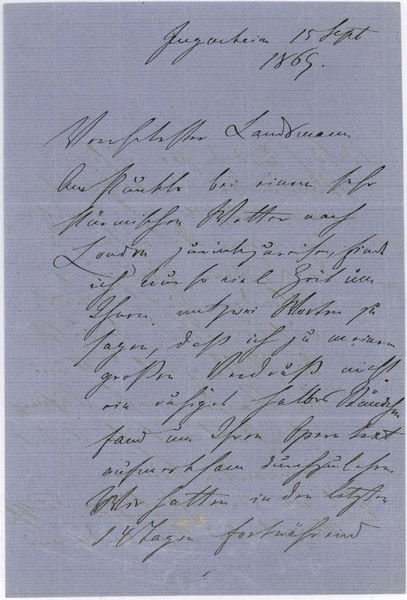 Jugenheim 15 Sept
1869.
Verehrtester Landsmann
Am Punkte bei einem sehr
stürmischen Wetter nach
London zurückzureisen, finde
ich nur so viel Zeit um
Ihnen mit zwei Worten zu
sagen, daß ich zu meinem
großen Verdruß nicht
ein ruhiges halbes Stündchen
fand um Ihren Operntext
aufmerksam durchzulesen.
Wir hatten in den letzten
14 Tagen fortwährend